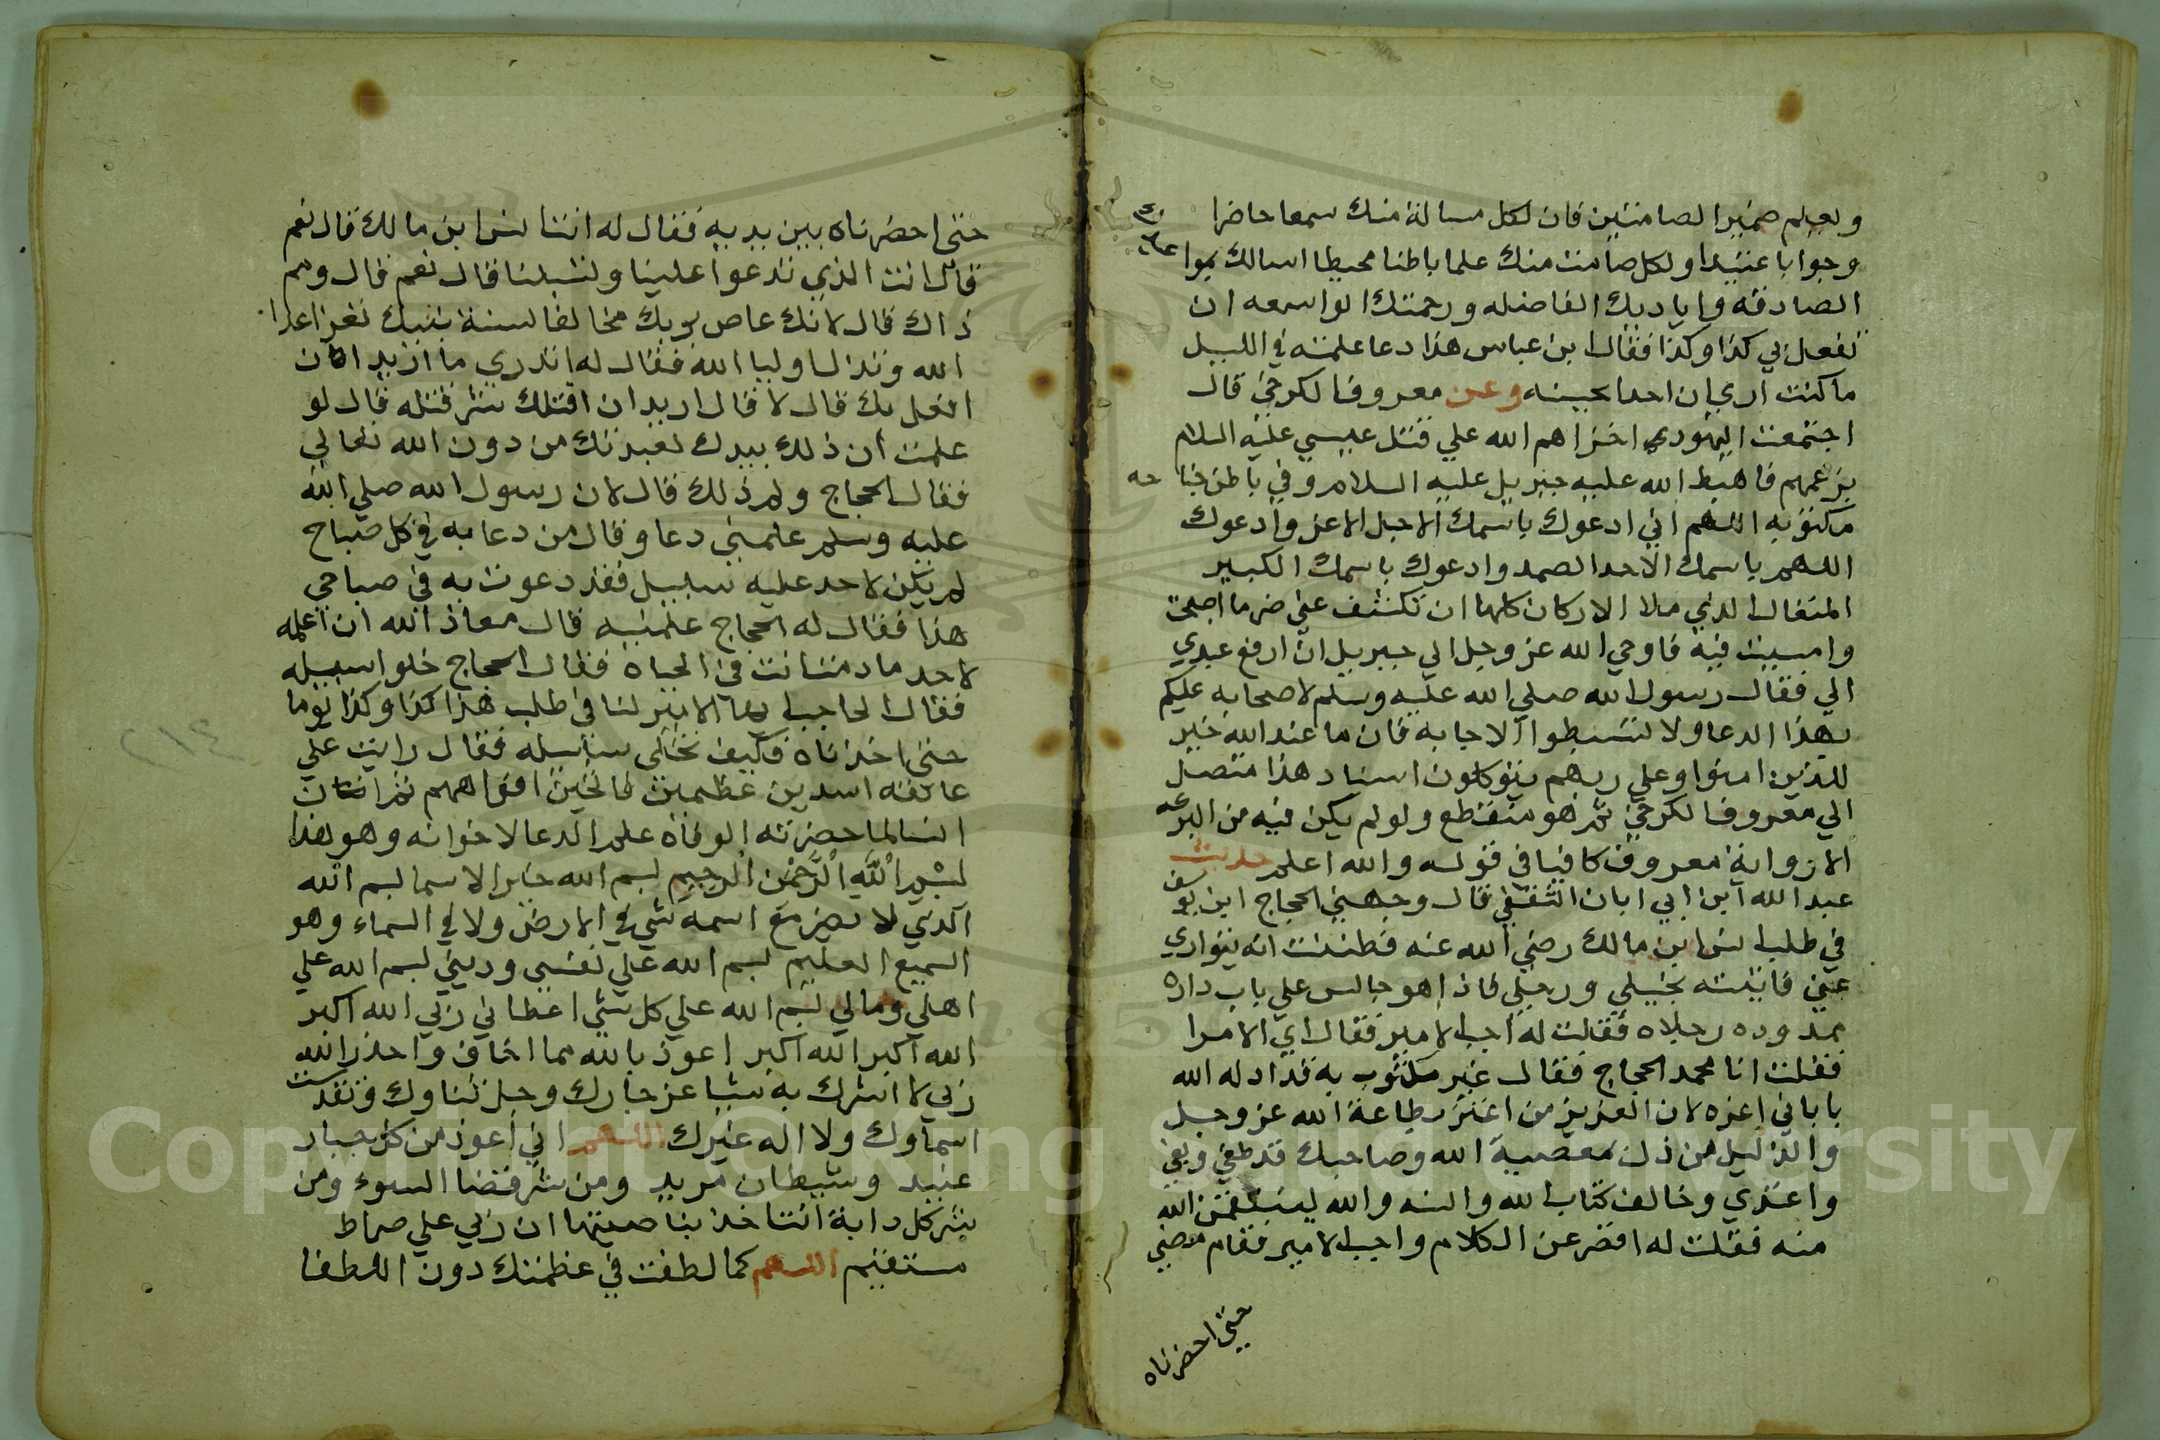 ويعلم ضمير الصامتين فان لكل مسالة منك سمعا حاضرا
وجوابا عتيدا ولكل صامت منك علما باطنا محيطا اسالك بموا
عدك
الصادقه واياديك الفاضله ورحمتك الواسعه ان
تفعل بي كذا وكذا فقال ابن عباس هذا دعا علمته في الليل
ما كنت اري ان احدا يحسنه وعن معروف الكرخي قال
اجتمعت اليهودي اخزاهم الله علي قتل عيسي عليه السلام
بزعمهم فاهبط الله عليه جبريل عليه السلام وفي باطن جنا حه
مكتوبه اللهم اني ادعوك باسمك الاجل الاعز وادعوك
اللهم باسمك الاحد الصمد وادعوك باسمك الكبير
المتعال الذي ملا الاركان كلها ان تكشف عني ضر ما اصبحت
وامسيت فيه فاوحي الله عز وجل الي جبريل ان ارفع عبدي
الي فقال رسول الله صلي الله عليه وسلم لاصحابه عليكم
بهذا الدعا ولا تستبطوا الاجابه فان ما عند الله خير
للذين امنوا وعلي ربهم يتوكلون اسناد هذا متصل
الي معروف الكرخي ثم هو منقطع ولو لم يكن فيه من البركه
الا رواية معروف كافيا في قوله والله اعلم حديث
عبد الله ابن ابي ابان الثقفي قال وجهني الحجاج ابن يوسف
في طلب انس ابن مالك رضي الله عنه فظننت انه يتواري
عني فاتيته بخيلي ورجلي فاذا هو جالس علي باب داره
ممدوده رجلاه فقلت له اجب الامير فقال اي الامرا
فقلت انا محمد الحجاج فقال غير مكثوب به قد اذله الله
يا باني اعزه لان العزيز من اعتز بطاعة الله عز وجل
والذليل من ذل بمعصية الله وصاحبك قد طغي وبغي
واعتدي وخالف كتاب الله والسنه والله لينتقمن الله
منه فقلت له اقصر عن الكلام واجب الامير فقام معني
حتي احضرناه
حتي احضرناه بين يديه فقال له انت انس ابن مالك قال نعم
قال انت الذي تدعوا علينا وتسبنا قال نعم قال ومم
ذاك قال لانك عاص لربك مخالف لسنة نبيك تعز اعدا
الله وتذل اوليا الله فقال له اتدري ما اريد ان
افعل بك قال لا قال اريد ان اقتلك شر قتله قال لو
علمت ان ذلك بيدك لعبدتك من دون الله تعالي
فقال الحجاج ولم ذلك قال لان رسول الله صلي الله
عليه وسلم علمني دعا وقال من دعا به في كل صباح
لم يكن لاحد عليه سبيل فقد دعوت به في صباحي
هذا فقال له الحجاج علمنيه قال معاذ الله ان اعلمه
لاحد ما دمت انت في الحياه فقال الحجاج خلوا سبيله
فقال الحاجب ايها الامير لنا في طلب هذا كذا وكذا يوما
حتي اخذناه فكيف نخلي سبيله فقال رايت علي
عاتقه اسدين عظيمين فاتحين افواههم ثم ان
انسا لما حضرته الوفاه علم الدعا لاخوانه وهو هذا
بسم الله الرحمن الرحيم بسم الله خير الاسما بسم الله
الذي لا يضر مع اسمه شي في الارض ولا في السماء وهو
السميع العليم بسم الله علي نفسي وديني بسم الله علي
اهلي ومالي بسم الله علي كل شي اعطاني ربي الله اكبر
الله اكبر الله اكبر اعوذ بالله مما اخاف واحذر الله
ربي لا اشرك به شيا عز جارك وجل ثناوك وتقدست
اسماوك ولا اله غيرك اللهم اني اعوذ من كل جبار
عنيد وشيطان مريد ومن شر قضا السوء ومن
شر كل دابة انت اخذ بناصيتها ان ربي علي صراط
مستقيم اللهم كما لطفت في عظمتك دون اللطفا
٢١٤
Copyright © King Saud University